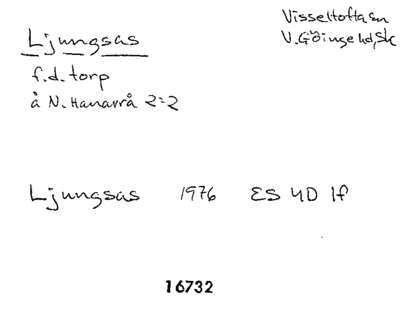 Ljungsas
Visseltofta sn
V. Göinge hd, Sk
f.d. torp
å N. Hanarrå 2:2
Ljungsas 1976 ES 4D 1f
16732